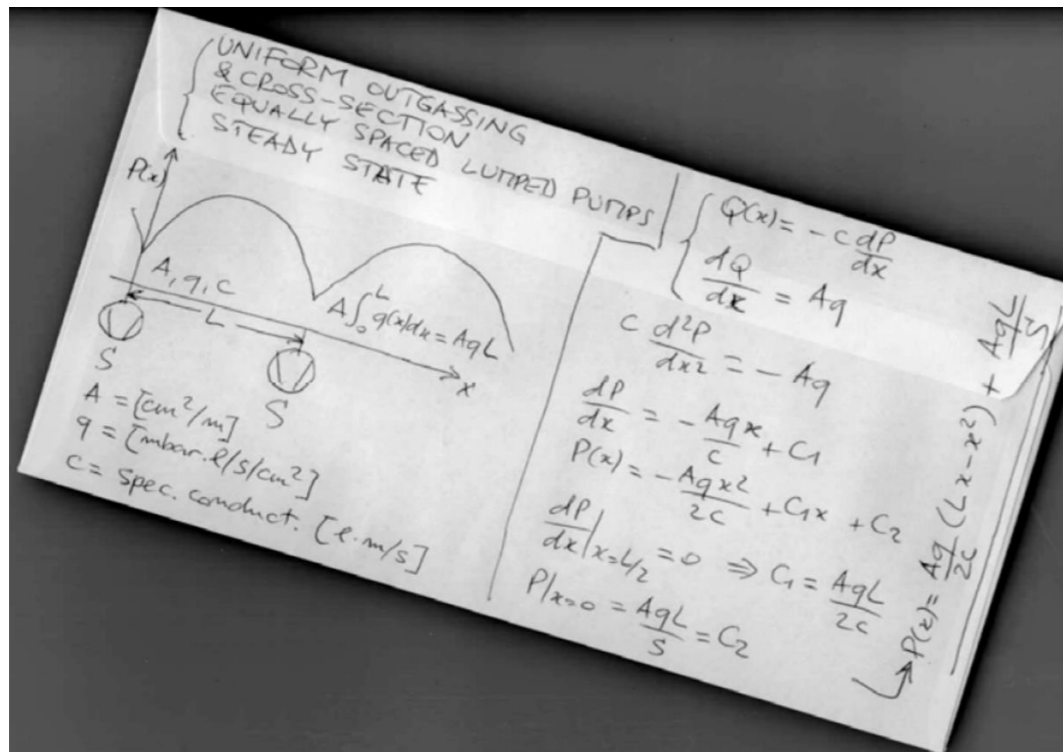 UNIFORM OUTGASSING
& CROSS-SECTION
EQUALLY SPACED LUMPED PUMPS
STEADY STATE
P(x)
A, q, c
A∫₀ᴸ q(x)dx = AqL
L
x
S
S
A = [cm²/m]
q = [mbar.l/s/cm²]
c = spec. conduct. [l.m/s]
Q(x) = -c dP/dx
dQ/dx = Aq
c d²P/dx² = - Aq
dP/dx = - Aqx/c + C₁
P(x) = - Aqx²/2c + C₁x + C₂
dP/dx|x=L/2 = 0 ⇒ C₁ = AqL/2c
P|x=0 = AqL/S = C₂
→ P(x) = Aq/2c (Lx - x²) + AqL/S